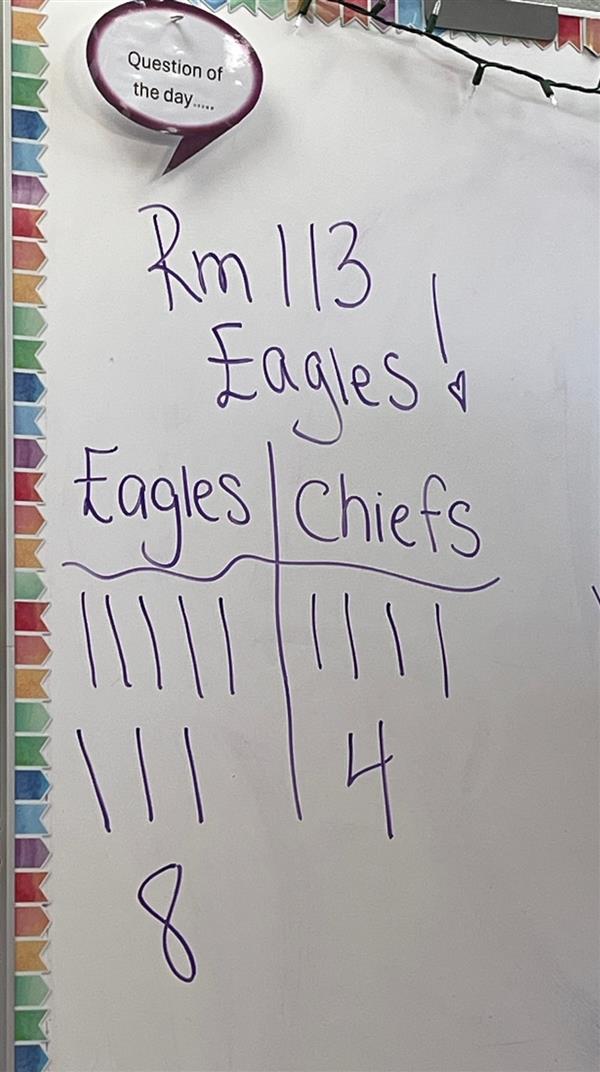 Question of
the day.....
Rm 113
Eagles!
Eagles Chiefs
||||| ||||
||| 4
8